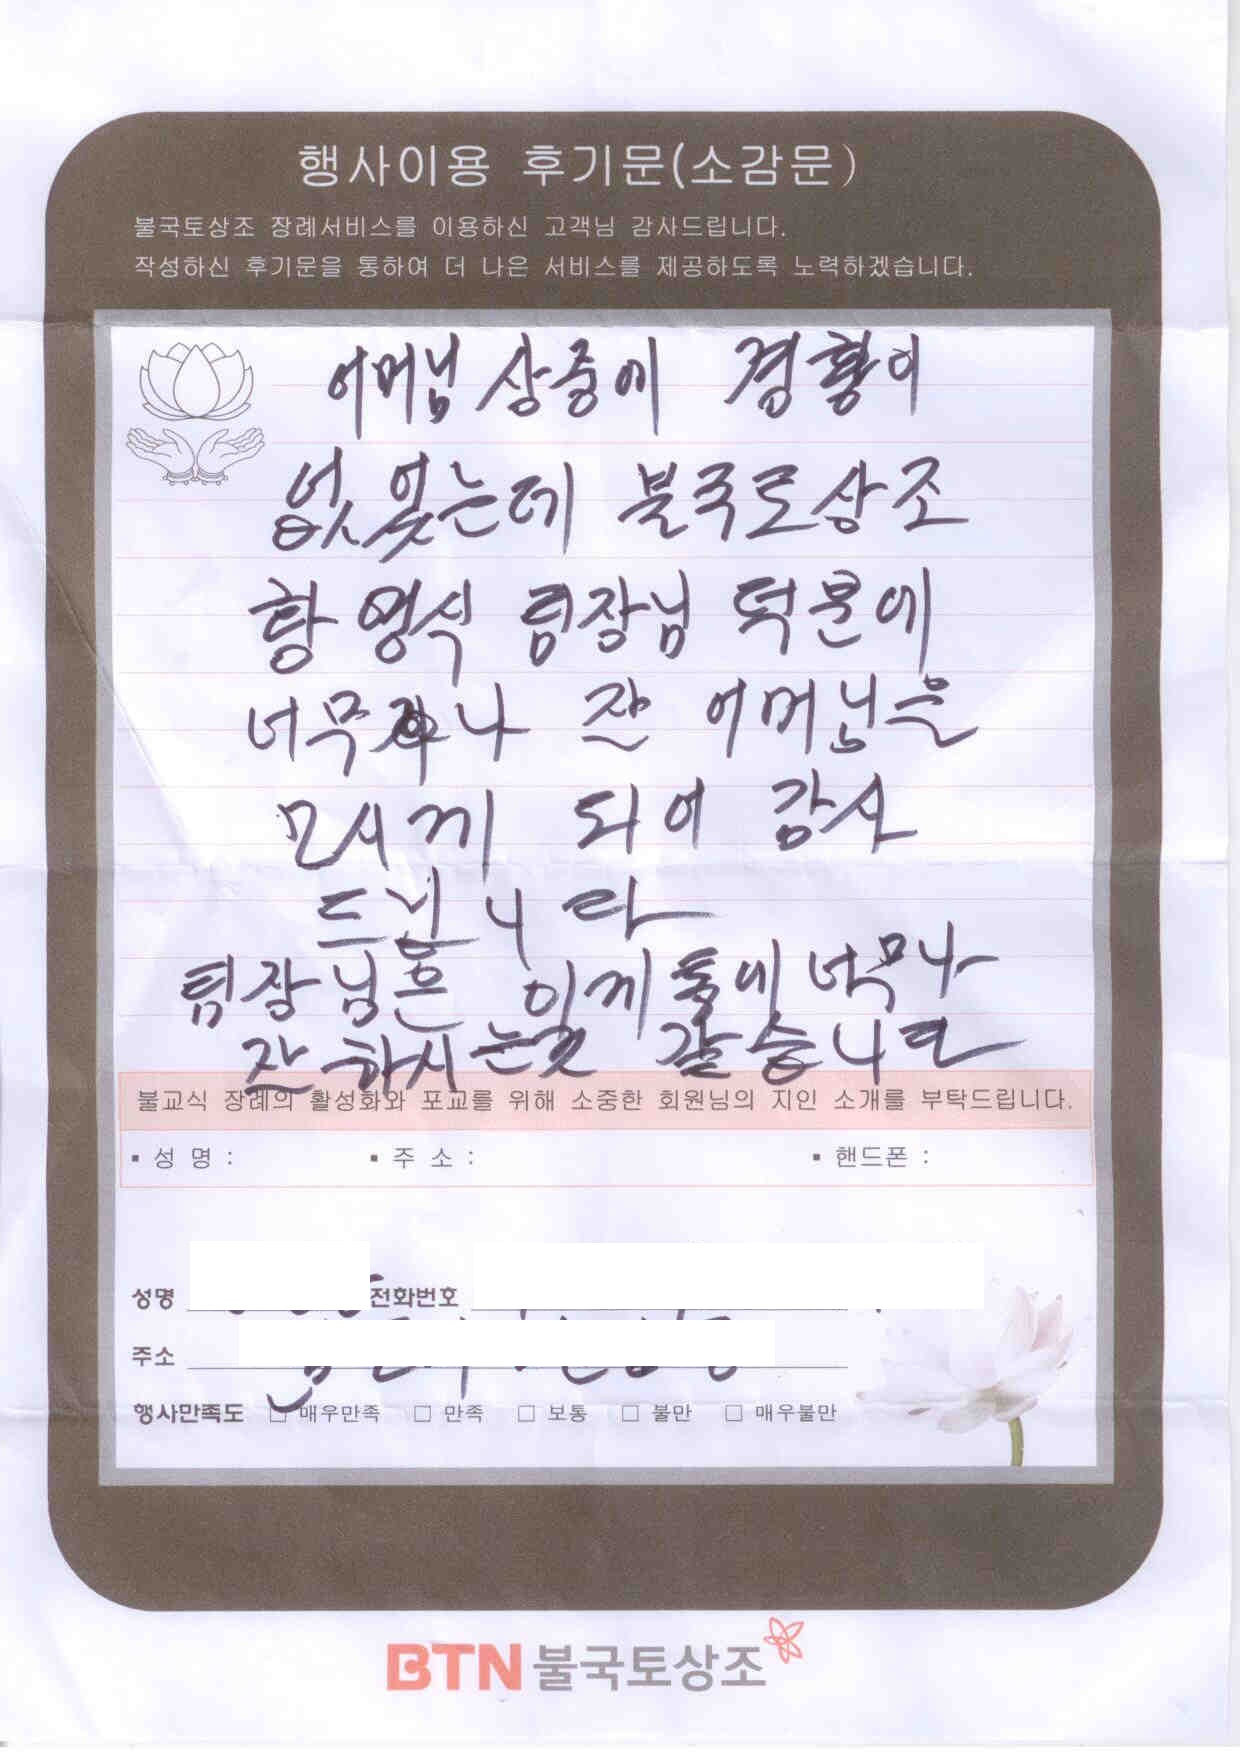 행사이용 후기문(소감문)
불국토상조 장례서비스를 이용하신 고객님 감사드립니다.
작성하신 후기문을 통하여 더 나은 서비스를 제공하도록 노력하겠습니다.
어머님 상중에 경황이
없었는데 불국토상조
황영식 팀장님 덕분에
너무나 잘 어머님을
모시게 되어 감사
드립니다
팀장님은 너무나
잘 하시는것 같습니다
불교식 장례의 활성화와 포교를 위해 소중한 회원님의 지인 소개를 부탁드립니다.
▪ 성 명 : ▪ 주 소 : ▪ 핸드폰 :
성명 전화번호
주소
행사만족도 □ 매우만족 □ 만족 □ 보통 □ 불만 □ 매우불만
BTN 불국토상조